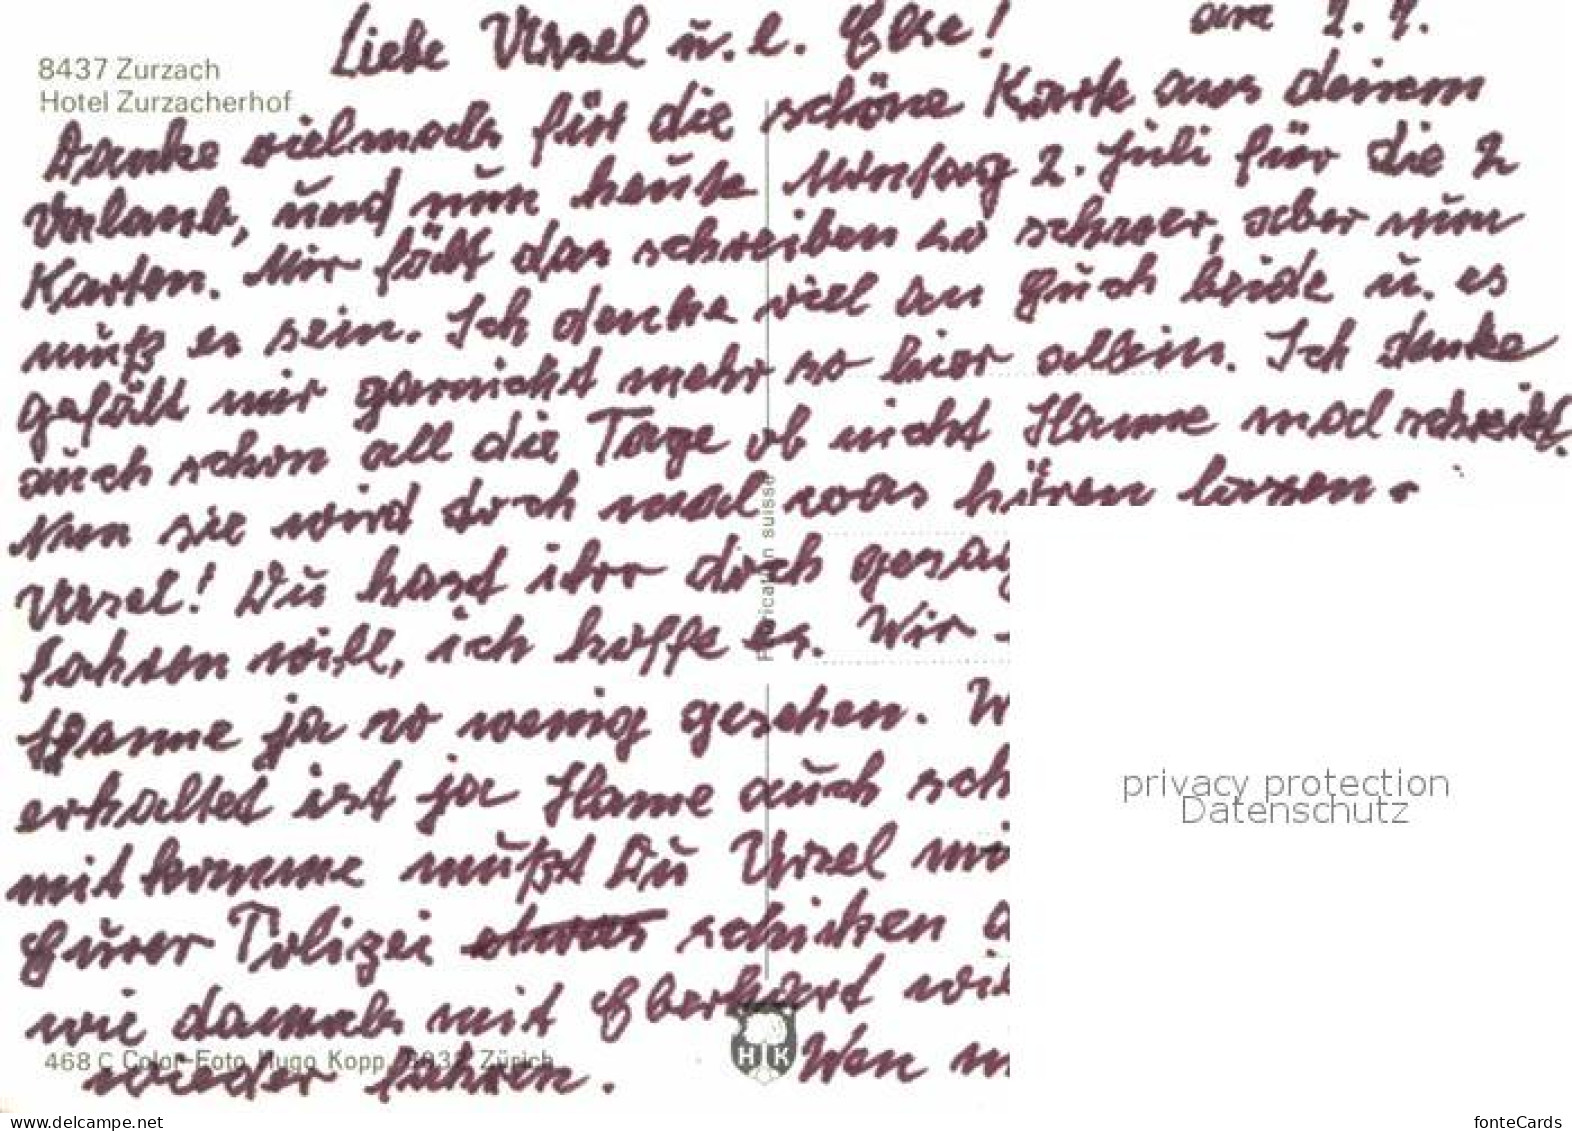 8437 Zurzach
Hotel Zurzacherhof
Liebe Ursel u. l. Elke! am 2. 7.
Danke vielmals für die schöne Karte aus deinem
Urlaub, und nun heute Montag 2. Juli für die 2
Karten. Mir fällt das schreiben so schwer, aber nun
muß es sein. Ich denke viel an Euch beide u. es
gefällt mir garnicht mehr so hier allein. Ich denke
auch schon all die Tage ob nicht Hanne mal schreibt.
Nun sie wird doch mal was hören lassen.
Ursel! Du hast ihr doch gesag
fahren will, ich hoffe es. Wir
Hanne ja so wenig gesehen. W
erhaltet ist ja Hanne auch sch
mit komme mußt Du Ursel mi
Eurer Polizei schicken
wie damals mit Eberhart wie
wieder fahren. Wen
Fabrication suisse
468 C Color-Foto Hugo Kopp, Zürich
HK
privacy protection
Datenschutz
www.delcampe.net
fonteCards